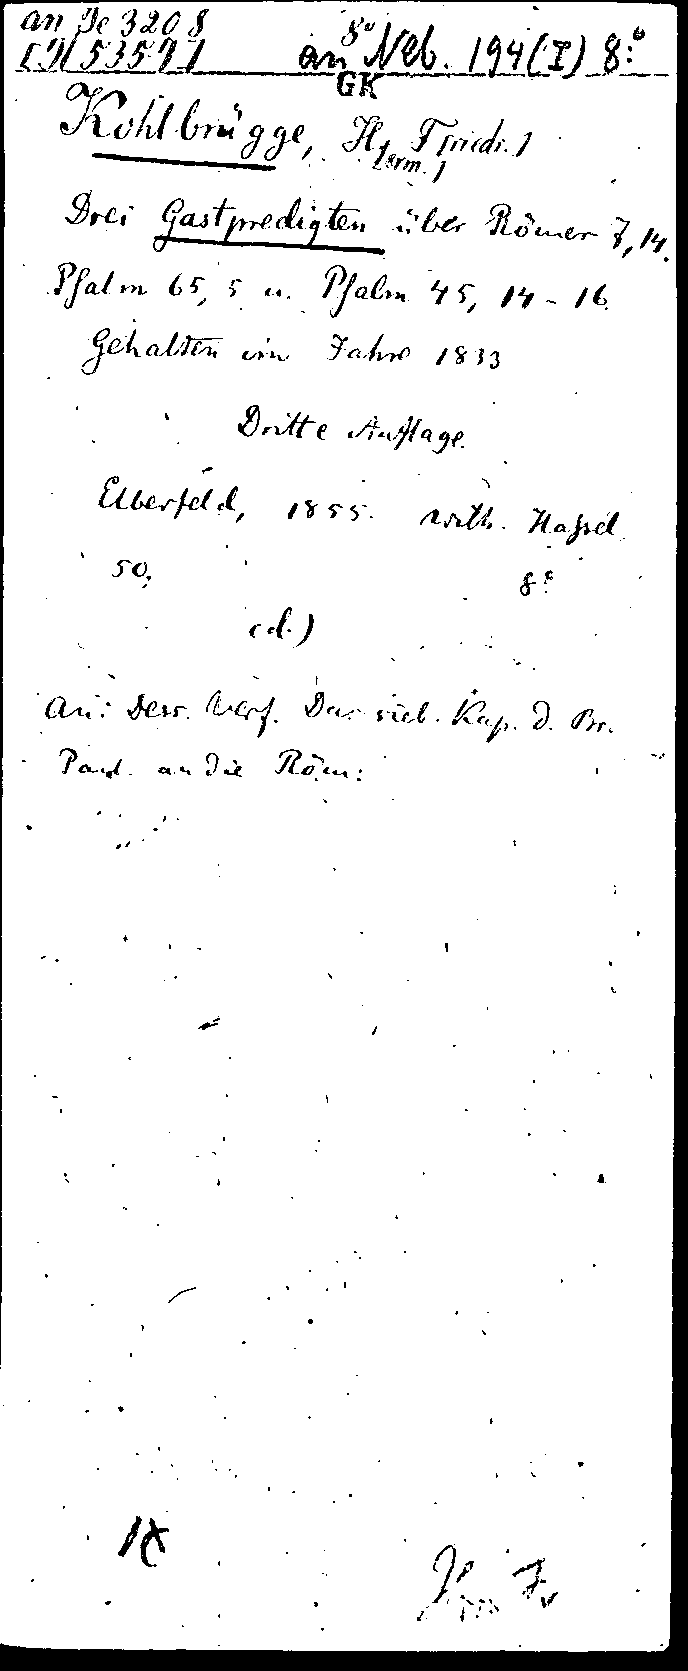 an Je 3208
8° an Neb. 194 (I) 8°
GK
Kohlbrügge, H[erm.] F[riedr.]
Drei Gastpredigten über Römer 7, 14.
Psalm 65, 5 u. Psalm 45, 14-16.
Gehalten im Jahre 1833
Dritte Auflage.
Elberfeld, 1855. Wilh. Hassel
50, 8°
cd.)
an: Dess. Verf. Das sieb. Kap. d. Br.
Paul. an die Röm: